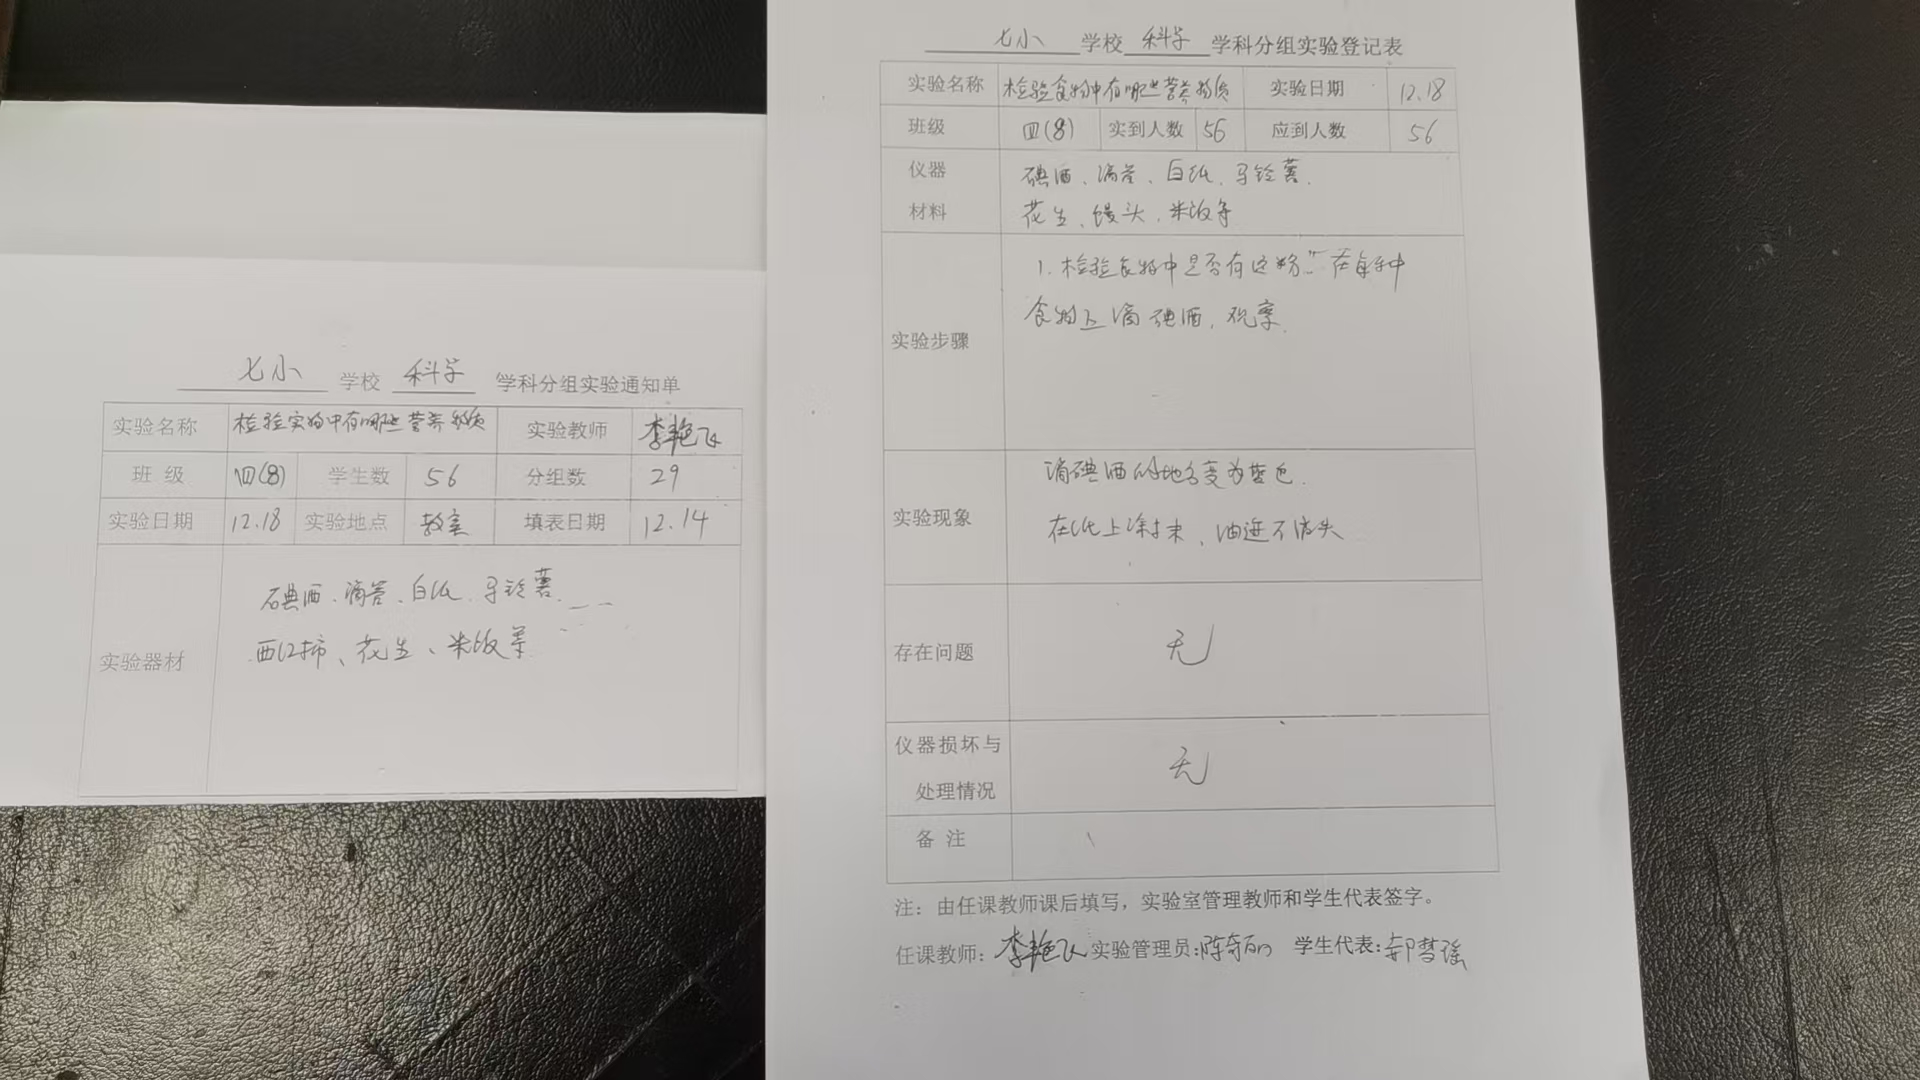 七小 学校 科学 学科分组实验通知单
实验名称 检验食物中有哪些营养物质 实验教师 李艳飞
班 级 四(8) 学生数 56 分组数 29
实验日期 12.18 实验地点 教室 填表日期 12.14
实验器材
碘酒、滴管、白纸、马铃薯、
西红柿、花生、米饭等
七小 学校 科学 学科分组实验登记表
实验名称 检验食物中有哪些营养物质 实验日期 12.18
班级 四(8) 实到人数 56 应到人数 56
仪器 碘酒、滴管、白纸、马铃薯、
材料 花生、馒头、米饭等
实验步骤
1. 检验食物中是否有淀粉:在每种
食物上滴碘酒,观察。
实验现象
滴碘酒的地方变为蓝色.
在纸上涂抹、油迹不消失
存在问题 无
仪器损坏与
处理情况 无
备 注
注：由任课教师课后填写，实验室管理教师和学生代表签字。
任课教师：李艳飞 实验管理员: 学生代表: